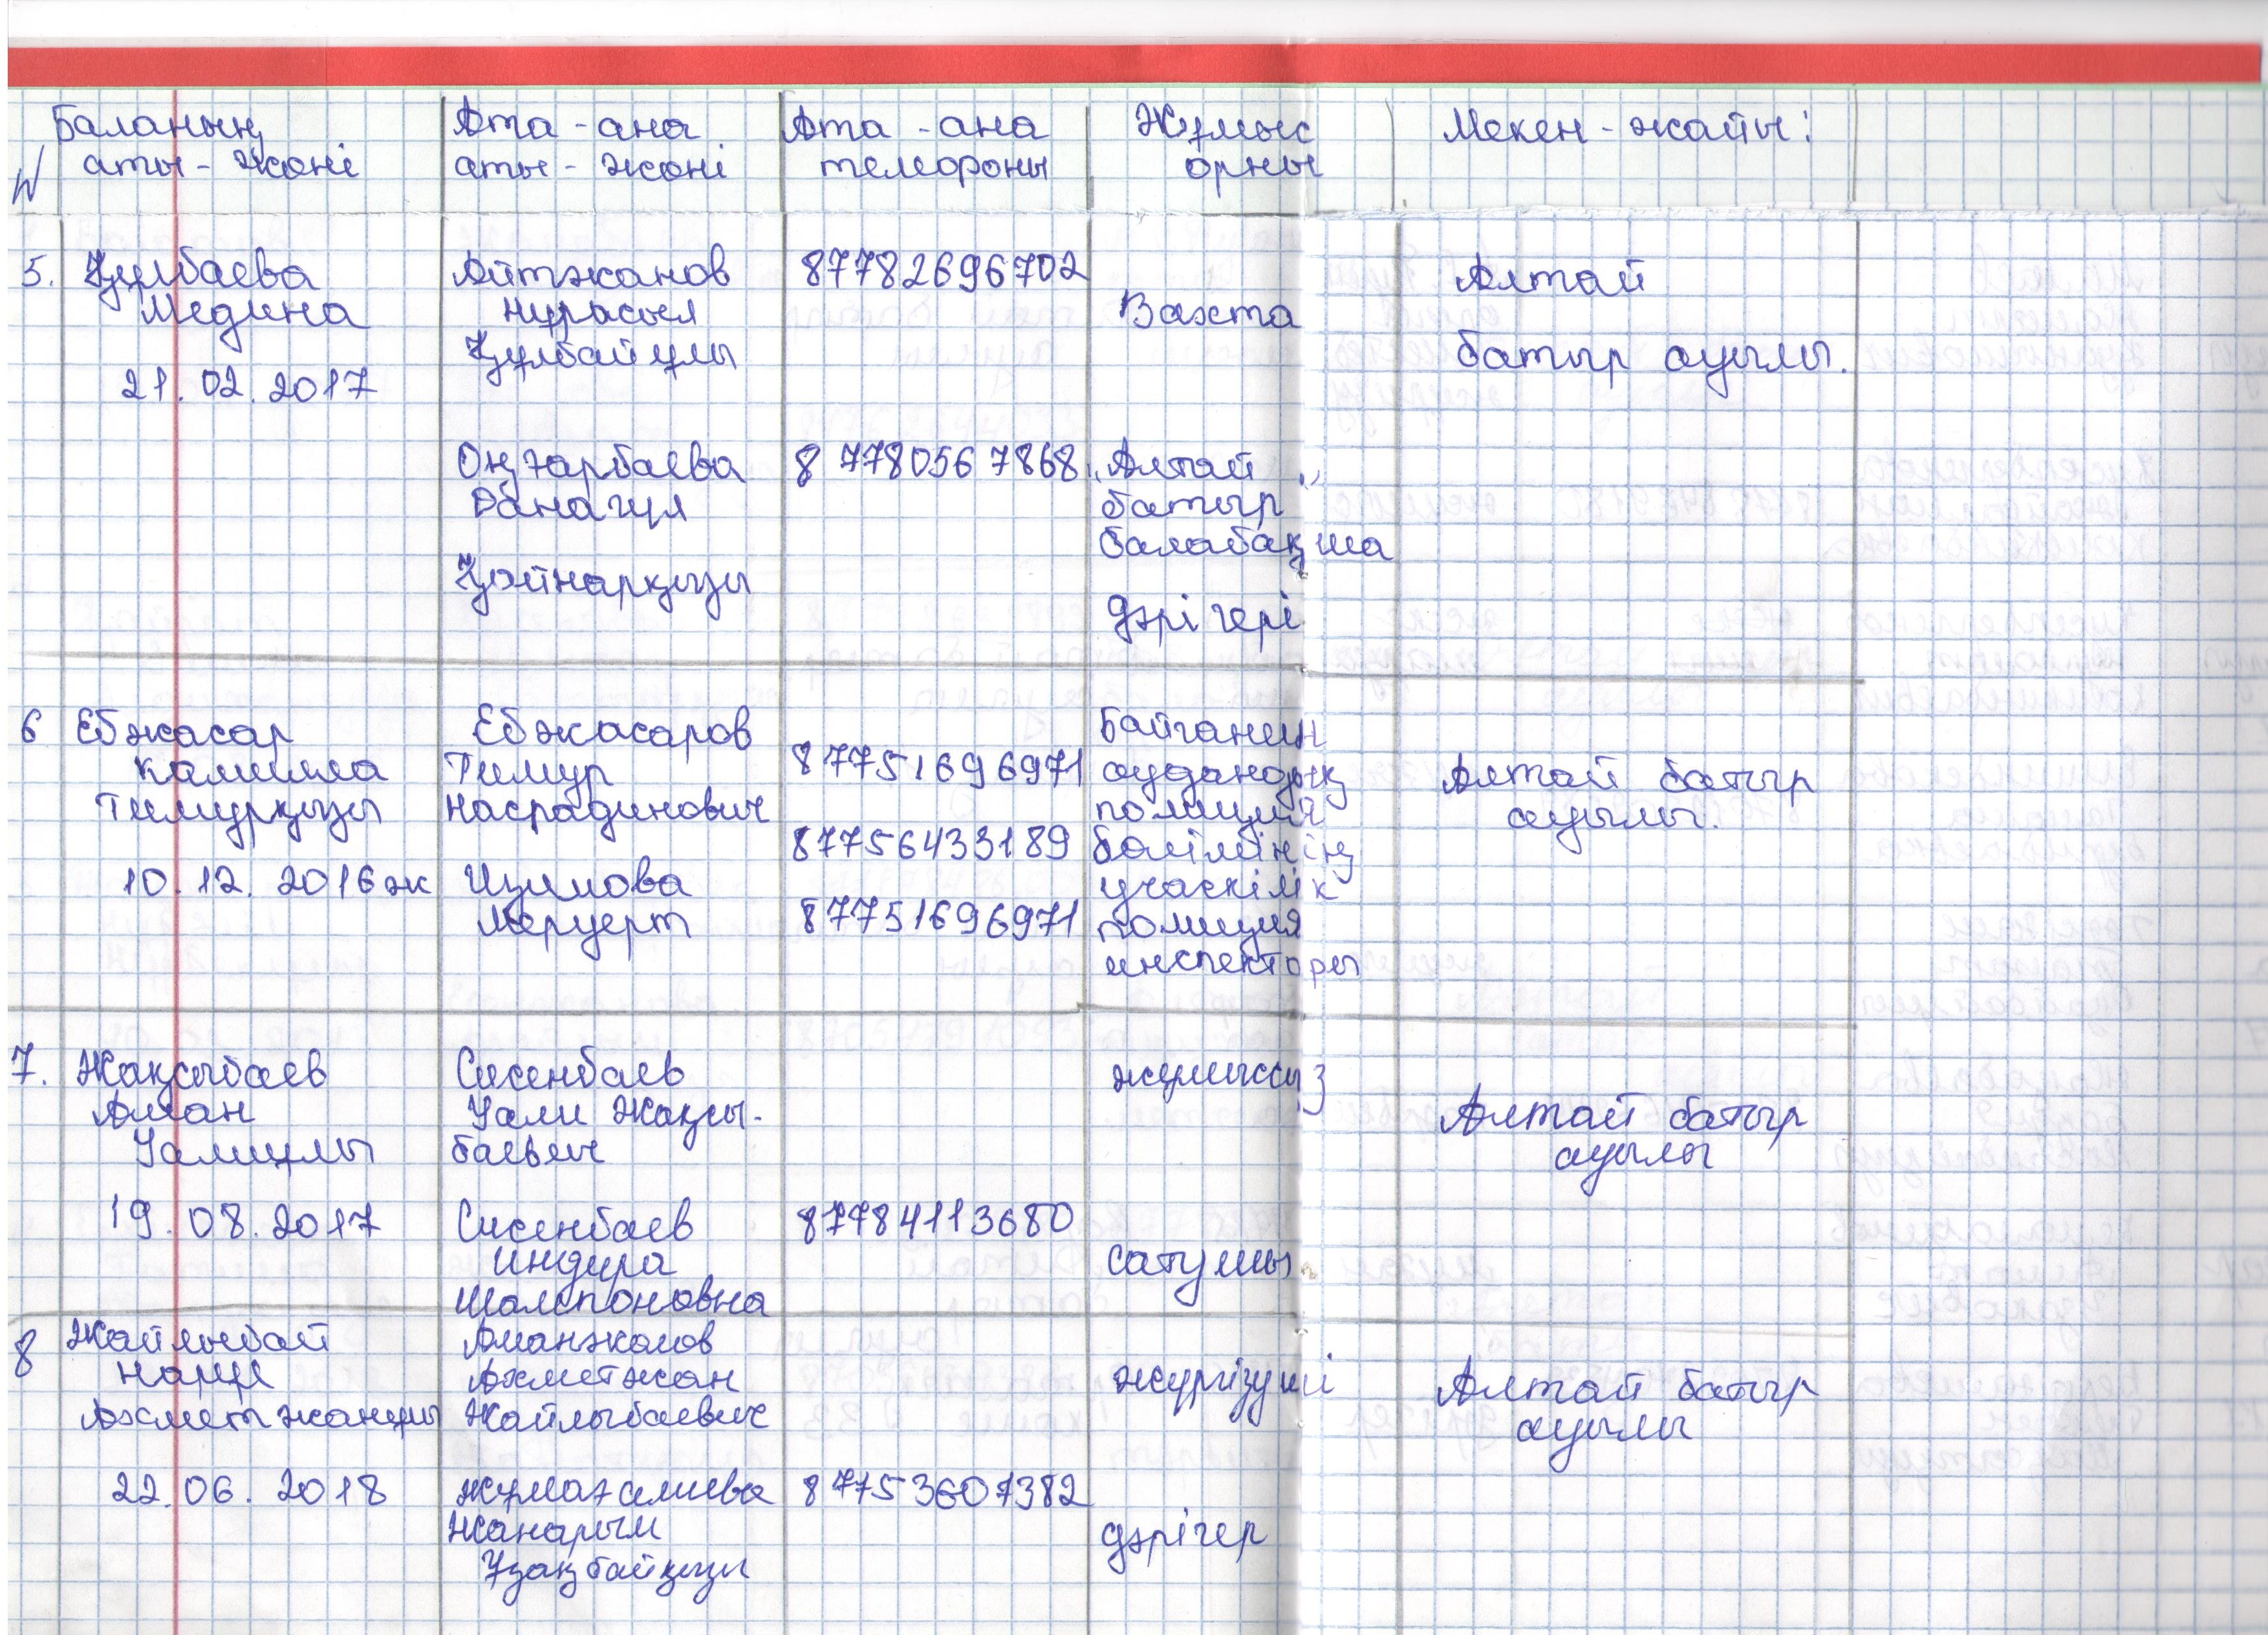 Баланың
аты-жөні
Ата-ана
аты-жөні
Ата-ана
телефоны
Жұмыс
орны
Мекен-жайы:
N
5. Құлбаева
Медина
21.02.2017
Айтжанов
Нұрасыл
Құлбайұлы
87782696702
Вахта
Алтай
батыр ауылы.
Оңғарбаева
Данагүл
Қойнарқызы
8 7780567868
"Алтай
батыр"
балабақша
дәрігері
6 Ебжасар
Камилла
Тимурқызы
10.12.2016ж
Ебжасаров
Тимур
Насрадинович
87751696971
87756433189
Изимова
Меруерт
87751696971
Байганин
аудандық
полиция
бөлімінің
учаскілік
полиция
инспекторы
Алтай батыр
ауылы.
7. Жақсыбаев
Алан
Уалиұлы
19.08.2017
Сисенбаев
Уали Жақсы-
баевич
жұмыссыз
Алтай батыр
ауылы
Сисенбаев
Индира
87784113680
сатушы
8 Жайлыбай
Ахметжанұлы
22.06.2018
Аманжолов
Ахметжан
Жайлыбаевич
жүргізуші
Алтай батыр
ауылы
Жұмағалиева
Жанарым
Ұзақбайқызы
87753607382
дәрігер